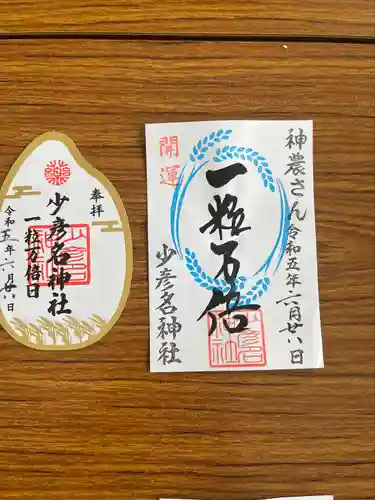 奉拝
少彦名神社
一粒万倍日
令和五年六月廿八日
神農さん
令和五年六月廿八日
開運
一粒万倍
少彦名神社